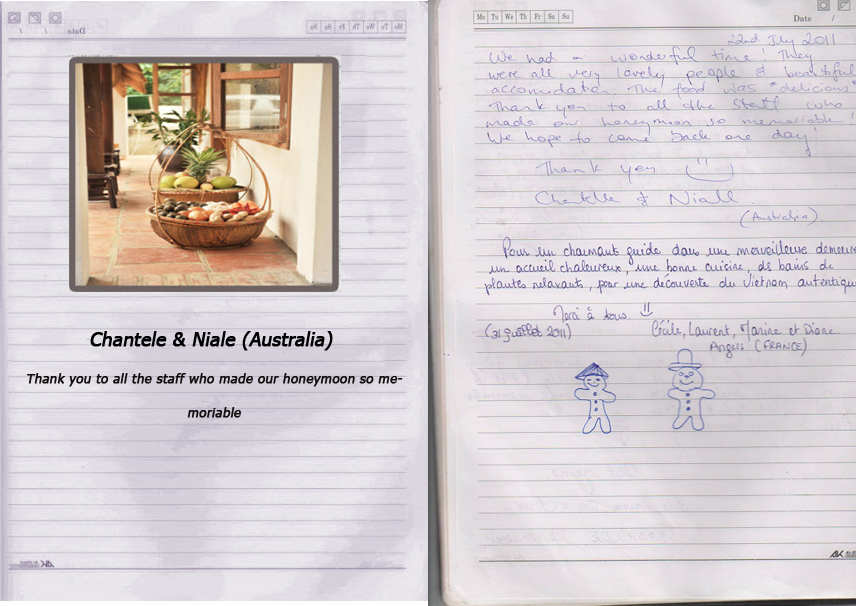 Date /
/ /
Mo Tu We Th Fr Sa Su
Chantele & Niale (Australia)
Thank you to all the staff who made our honeymoon so me-
moriable
Mo Tu We Th Fr Sa Su
Date /
22nd July 2011
We had a wonderful time! They
were all very lovely people & beautiful
accomodation. The food was "delicious"
Thank yey to all the staff who
made our honeymoon so memoriable!
We hope to come back one day!
Thank yey
Chantelle & Niall
(Australia)
Pour un charmant guide dans une merveilleuse demeure
un accueil chaleureux, une bonne cuisine, des bains de
plantes relaxants, pour une découverte du Vietnam authentique
Merci à tous.
(31 juillet 2011)
Cécile, Laurent, Marine et Diane
Angers (FRANCE)